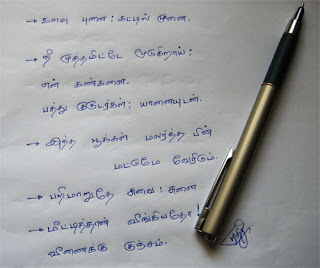 → களவு புனை : கட்டில் முனை.
→ நீ முத்தமிட்டே மூடுகிறாய் :
என் கண்களை.
பத்து குருடர்கள் ; யானையுடன்.
→ இந்த பூக்கள் மலர்ந்த பின்
மட்டுமே வேரிடும்.
→ பறிமாறுதே சுவை : சுனை
→ மீட்டித்தான் வீங்கியதோ !
வீணைக்கு குஞ்சம்.